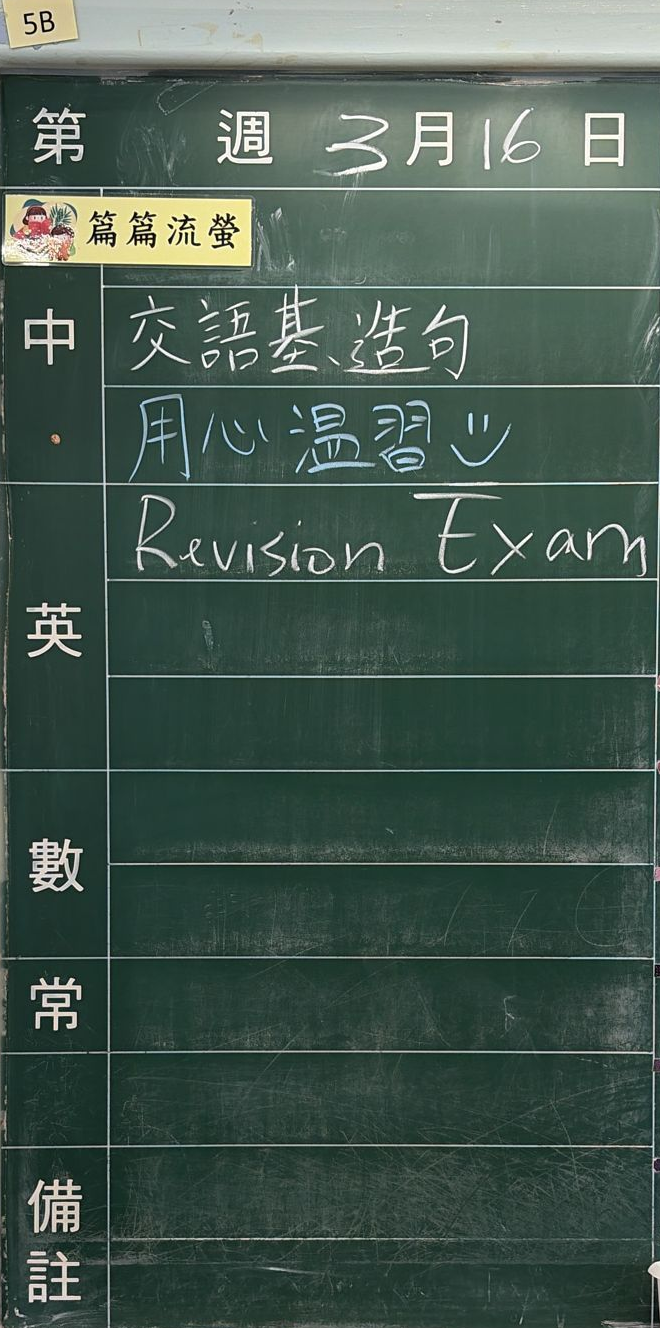 5B
第 週 3月16日
篇篇流螢
中
交語基、造句
用心温習
英
Revision Exam
數
常
備註